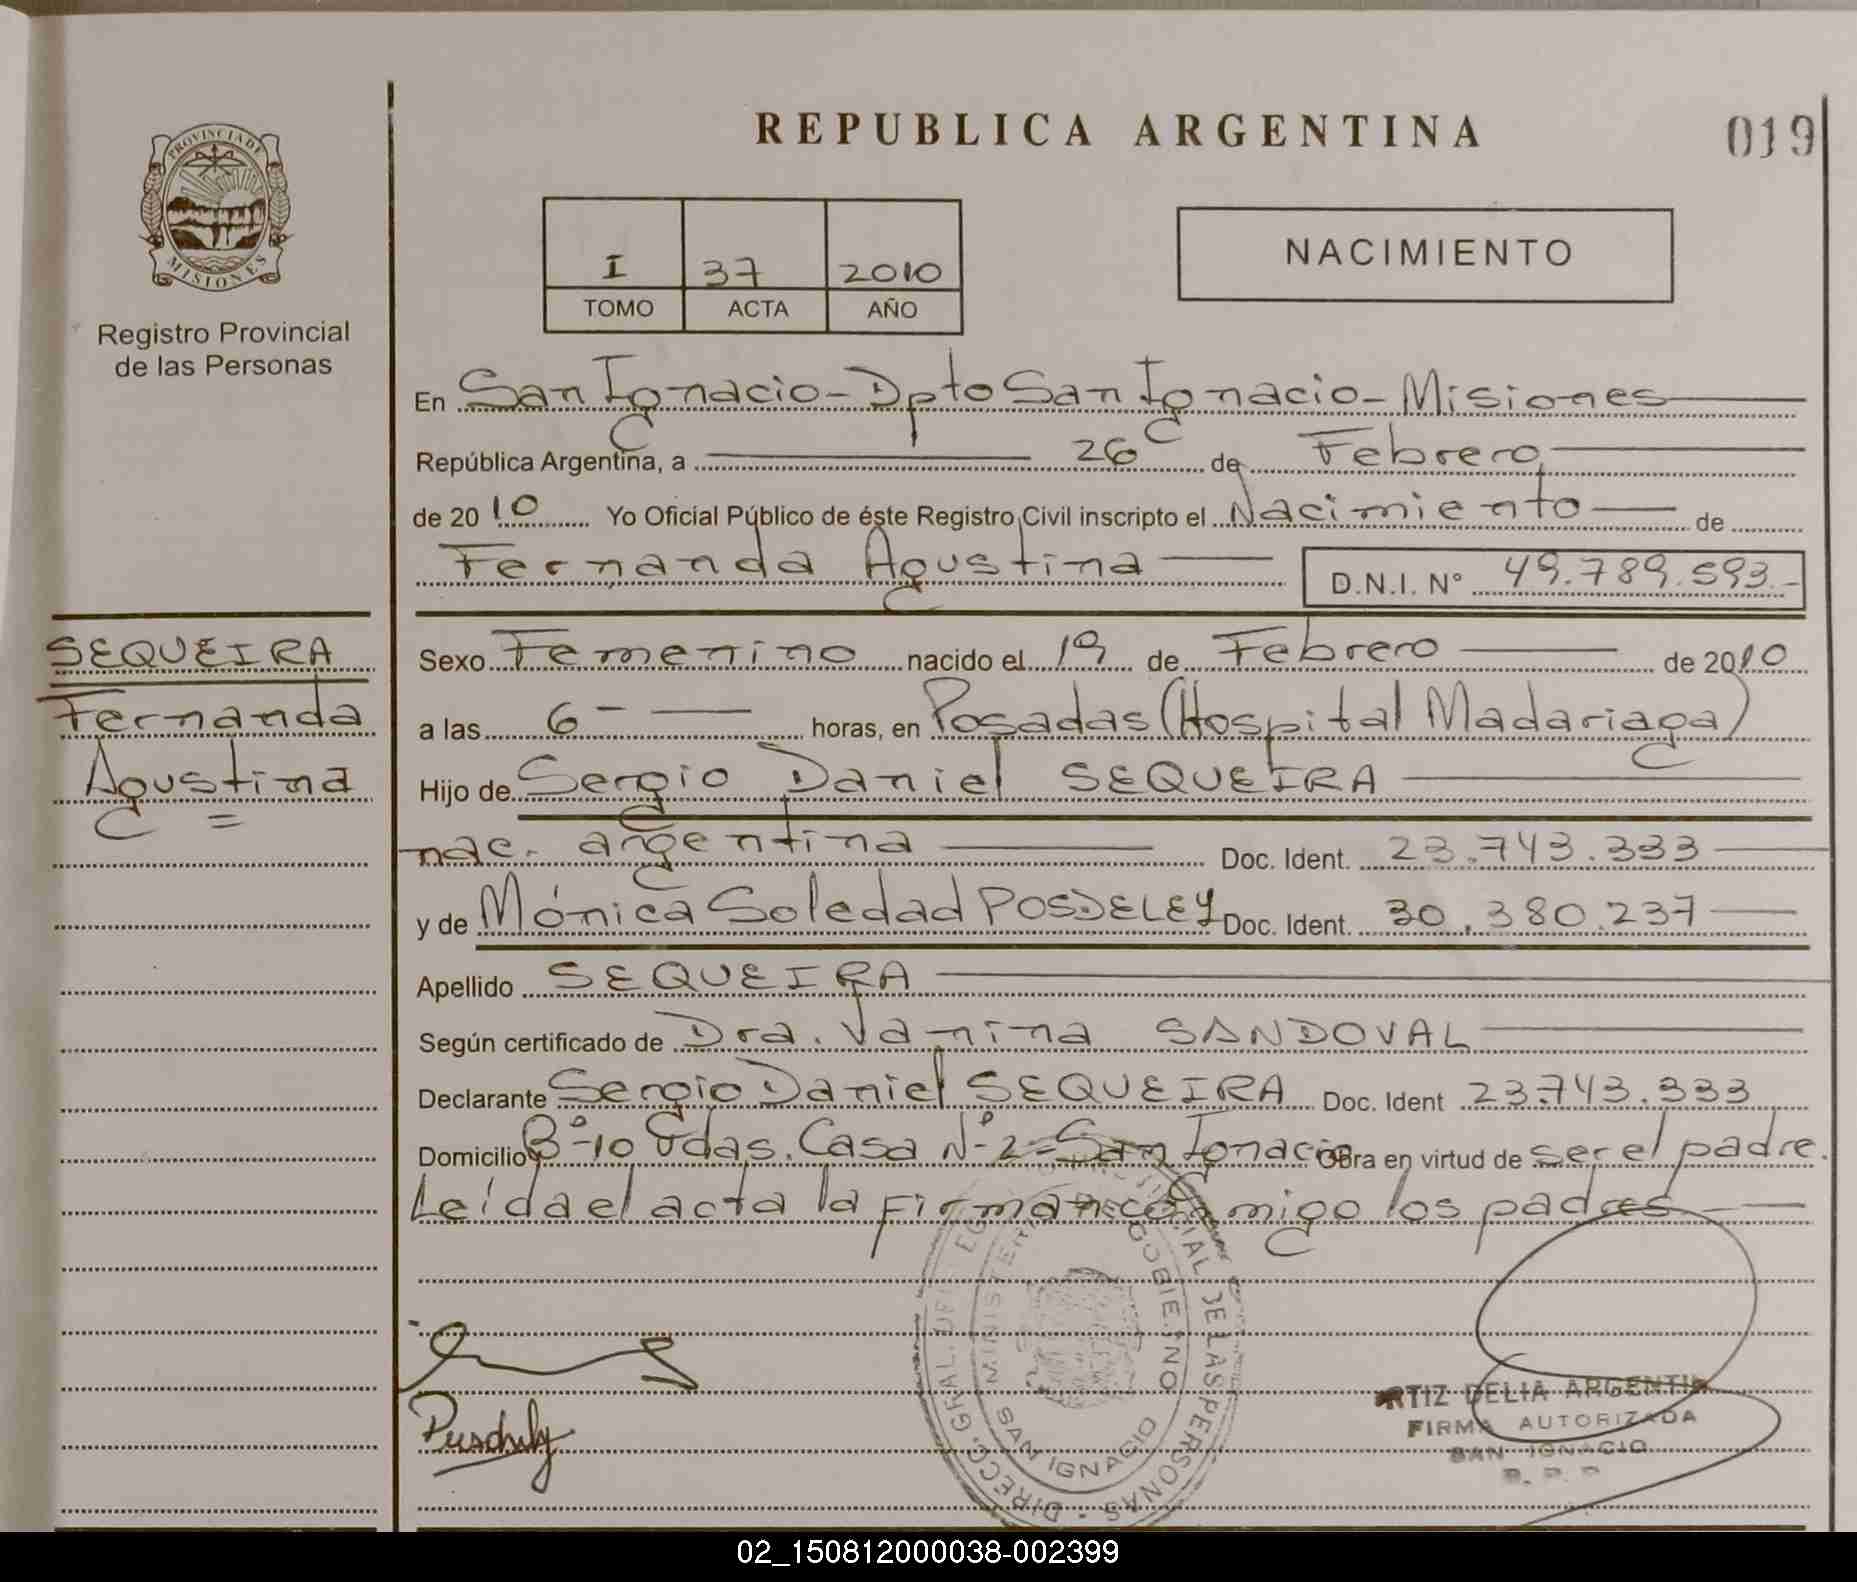 REPUBLICA ARGENTINA
019
PROVINCIA DE
MISIONES
Registro Provincial
de las Personas
I 37 2010
TOMO ACTA AÑO
NACIMIENTO
En San Ignacio - Dpto San Ignacio - Misiones
República Argentina, a 26 de Febrero
de 2010 Yo Oficial Público de éste Registro Civil inscripto el Nacimiento de
Fernanda Agustina D.N.I. Nº 49.789.593.-
SEQUEIRA
Fernanda
Agustina =
Sexo Femenino nacido el 19 de Febrero de 2010
a las 6 - horas, en Posadas (Hospital Madariaga)
Hijo de Sergio Daniel SEQUEIRA
nac. argentina Doc. Ident. 23.743.333
y de Mónica Soledad POSDELEY Doc. Ident. 30.380.237
Apellido SEQUEIRA
Según certificado de Dra. Vanina SANDOVAL
Declarante Sergio Daniel SEQUEIRA Doc. Ident 23.743.333
Domicilio Bº 10 Vdas. Casa Nº 2 = San Ignacio Obra en virtud de ser el padre.
Leída el acta la firman conmigo los padres
MINISTERIO GOBIERNO
SAN IGNACIO
DE LAS PERSONAS
RTIZ DELIA ARGENTIN
FIRMA AUTORIZADA
SAN IGNACIO
R. P. P.
02_150812000038-002399